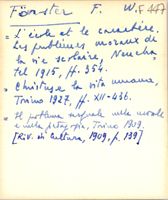 Förster F. W. F 447
" L'école et le caractère.
Les problèmes moraux de
la vie scolaire, Neucha-
tel 1915, pp. 354.
" Christus e la vita umana,
Torino 1927, pp. XII-436.
" Il problema sessuale nella morale
e nella pedagogia, Torino 1909
[Riv. di Cultura, 1909, p. 139]